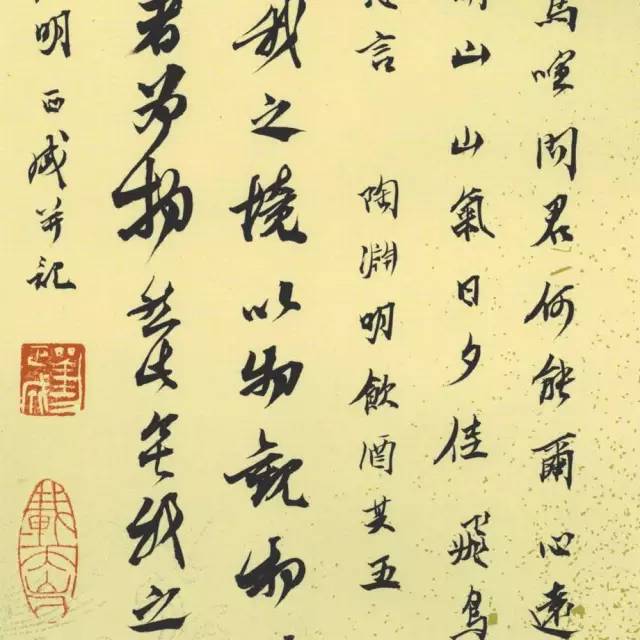 馬喧問君何能爾心遠
山 山氣日夕佳 飛鳥
言 陶淵明飲酒其五
我之境以物觀物
者為物然此無我之
明 正成并記